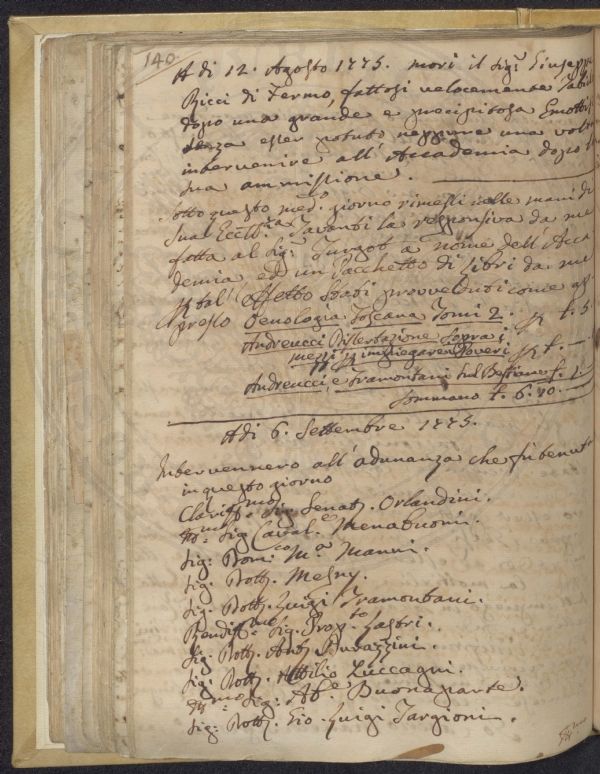 140.
A di 12. Agosto 1775. morì il Sig.r Giuseppe
Ricci di Fermo, fattosi velocemente Tabido
dopo una grande e precipitosa Emottisi
senza esser potuto neppure una volta
intervenire all'Accademia dopo la
sua ammissione.
Sotto questo med.o giorno rimessi nelle mani di
Sua Ecc.za Tavanti la responsiva da me
fatta al Sig. Turgot a nome dell'Acca
demia ed un Pacchetto di libri da me
p tal' effetto stati provveduti come ap
presso Oenologia Toscana Tomi 2. p £. 5.
Andreucci Dissertazione sopra i
mezzi p impiegare i Poveri p £. —
Andreucci, e Tramontani sul Bestiame £. 1.
Sommano £. 6. 10. —
A di 6. Settembre 1775.
Intervennero all'adunanza che fù tenuta
in questo giorno
Clariss.mo Sig. Senat. Orlandini.
Sig. Caval.e Menabuoni.
Sig: Dom.co M.a Manni.
Sig: Dott. Mesny.
Sig: Dott. Luigi Tramontani.
Rendiss.mo Sig. Prop.to Lastri.
Sig. Dott. Ant. Durazzini.
Sig. Dott. Attilio Zuccagni.
Sig: Ab.e Buonaparte.
Sig: Dott. Gio. Luigi Targioni.